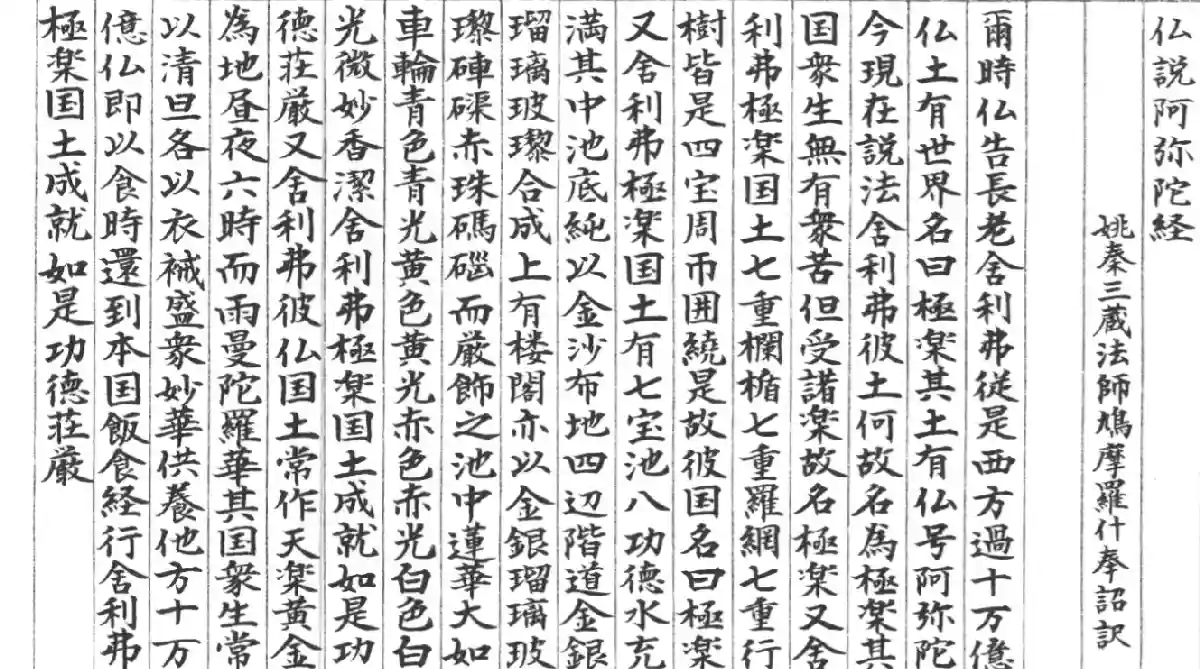 仏説阿弥陀経
姚秦三蔵法師鳩摩羅什奉詔訳
爾時仏告長老舎利弗従是西方過十万億
仏土有世界名曰極楽其土有仏号阿弥陀
今現在説法舎利弗彼土何故名為極楽其
国衆生無有衆苦但受諸楽故名極楽又舎
利弗極楽国土七重欄楯七重羅網七重行
樹皆是四宝周帀囲繞是故彼国名曰極楽
又舎利弗極楽国土有七宝池八功徳水充
満其中池底純以金沙布地四辺階道金銀
瑠璃玻瓈合成上有楼閣亦以金銀瑠璃玻
瓈硨磲赤珠碼碯而厳飾之池中蓮華大如
車輪青色青光黄色黄光赤色赤光白色白
光微妙香潔舎利弗極楽国土成就如是功
徳荘厳又舎利弗彼仏国土常作天楽黄金
為地昼夜六時而雨曼陀羅華其国衆生常
以清旦各以衣裓盛衆妙華供養他方十万
億仏即以食時還到本国飯食経行舎利弗
極楽国土成就如是功徳荘厳